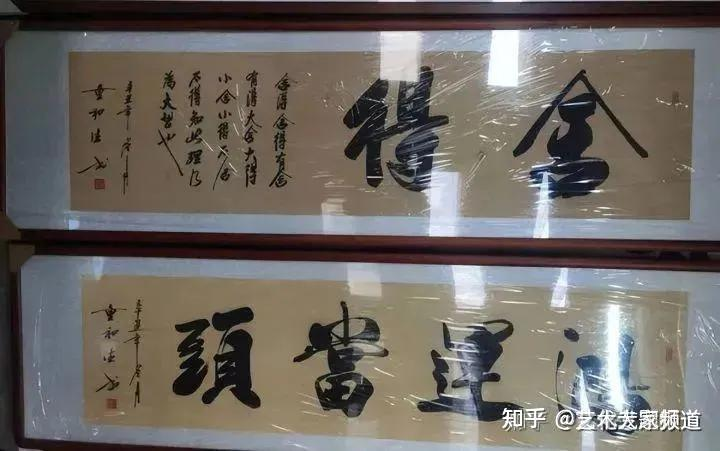 舍得
舍得舍得有舍
有得大舍大得
小舍小得不舍
不得知此理乃
為大也
辛丑年月
和法书
鴻運當頭
辛丑年月
和法书
知乎 @艺术大家频道